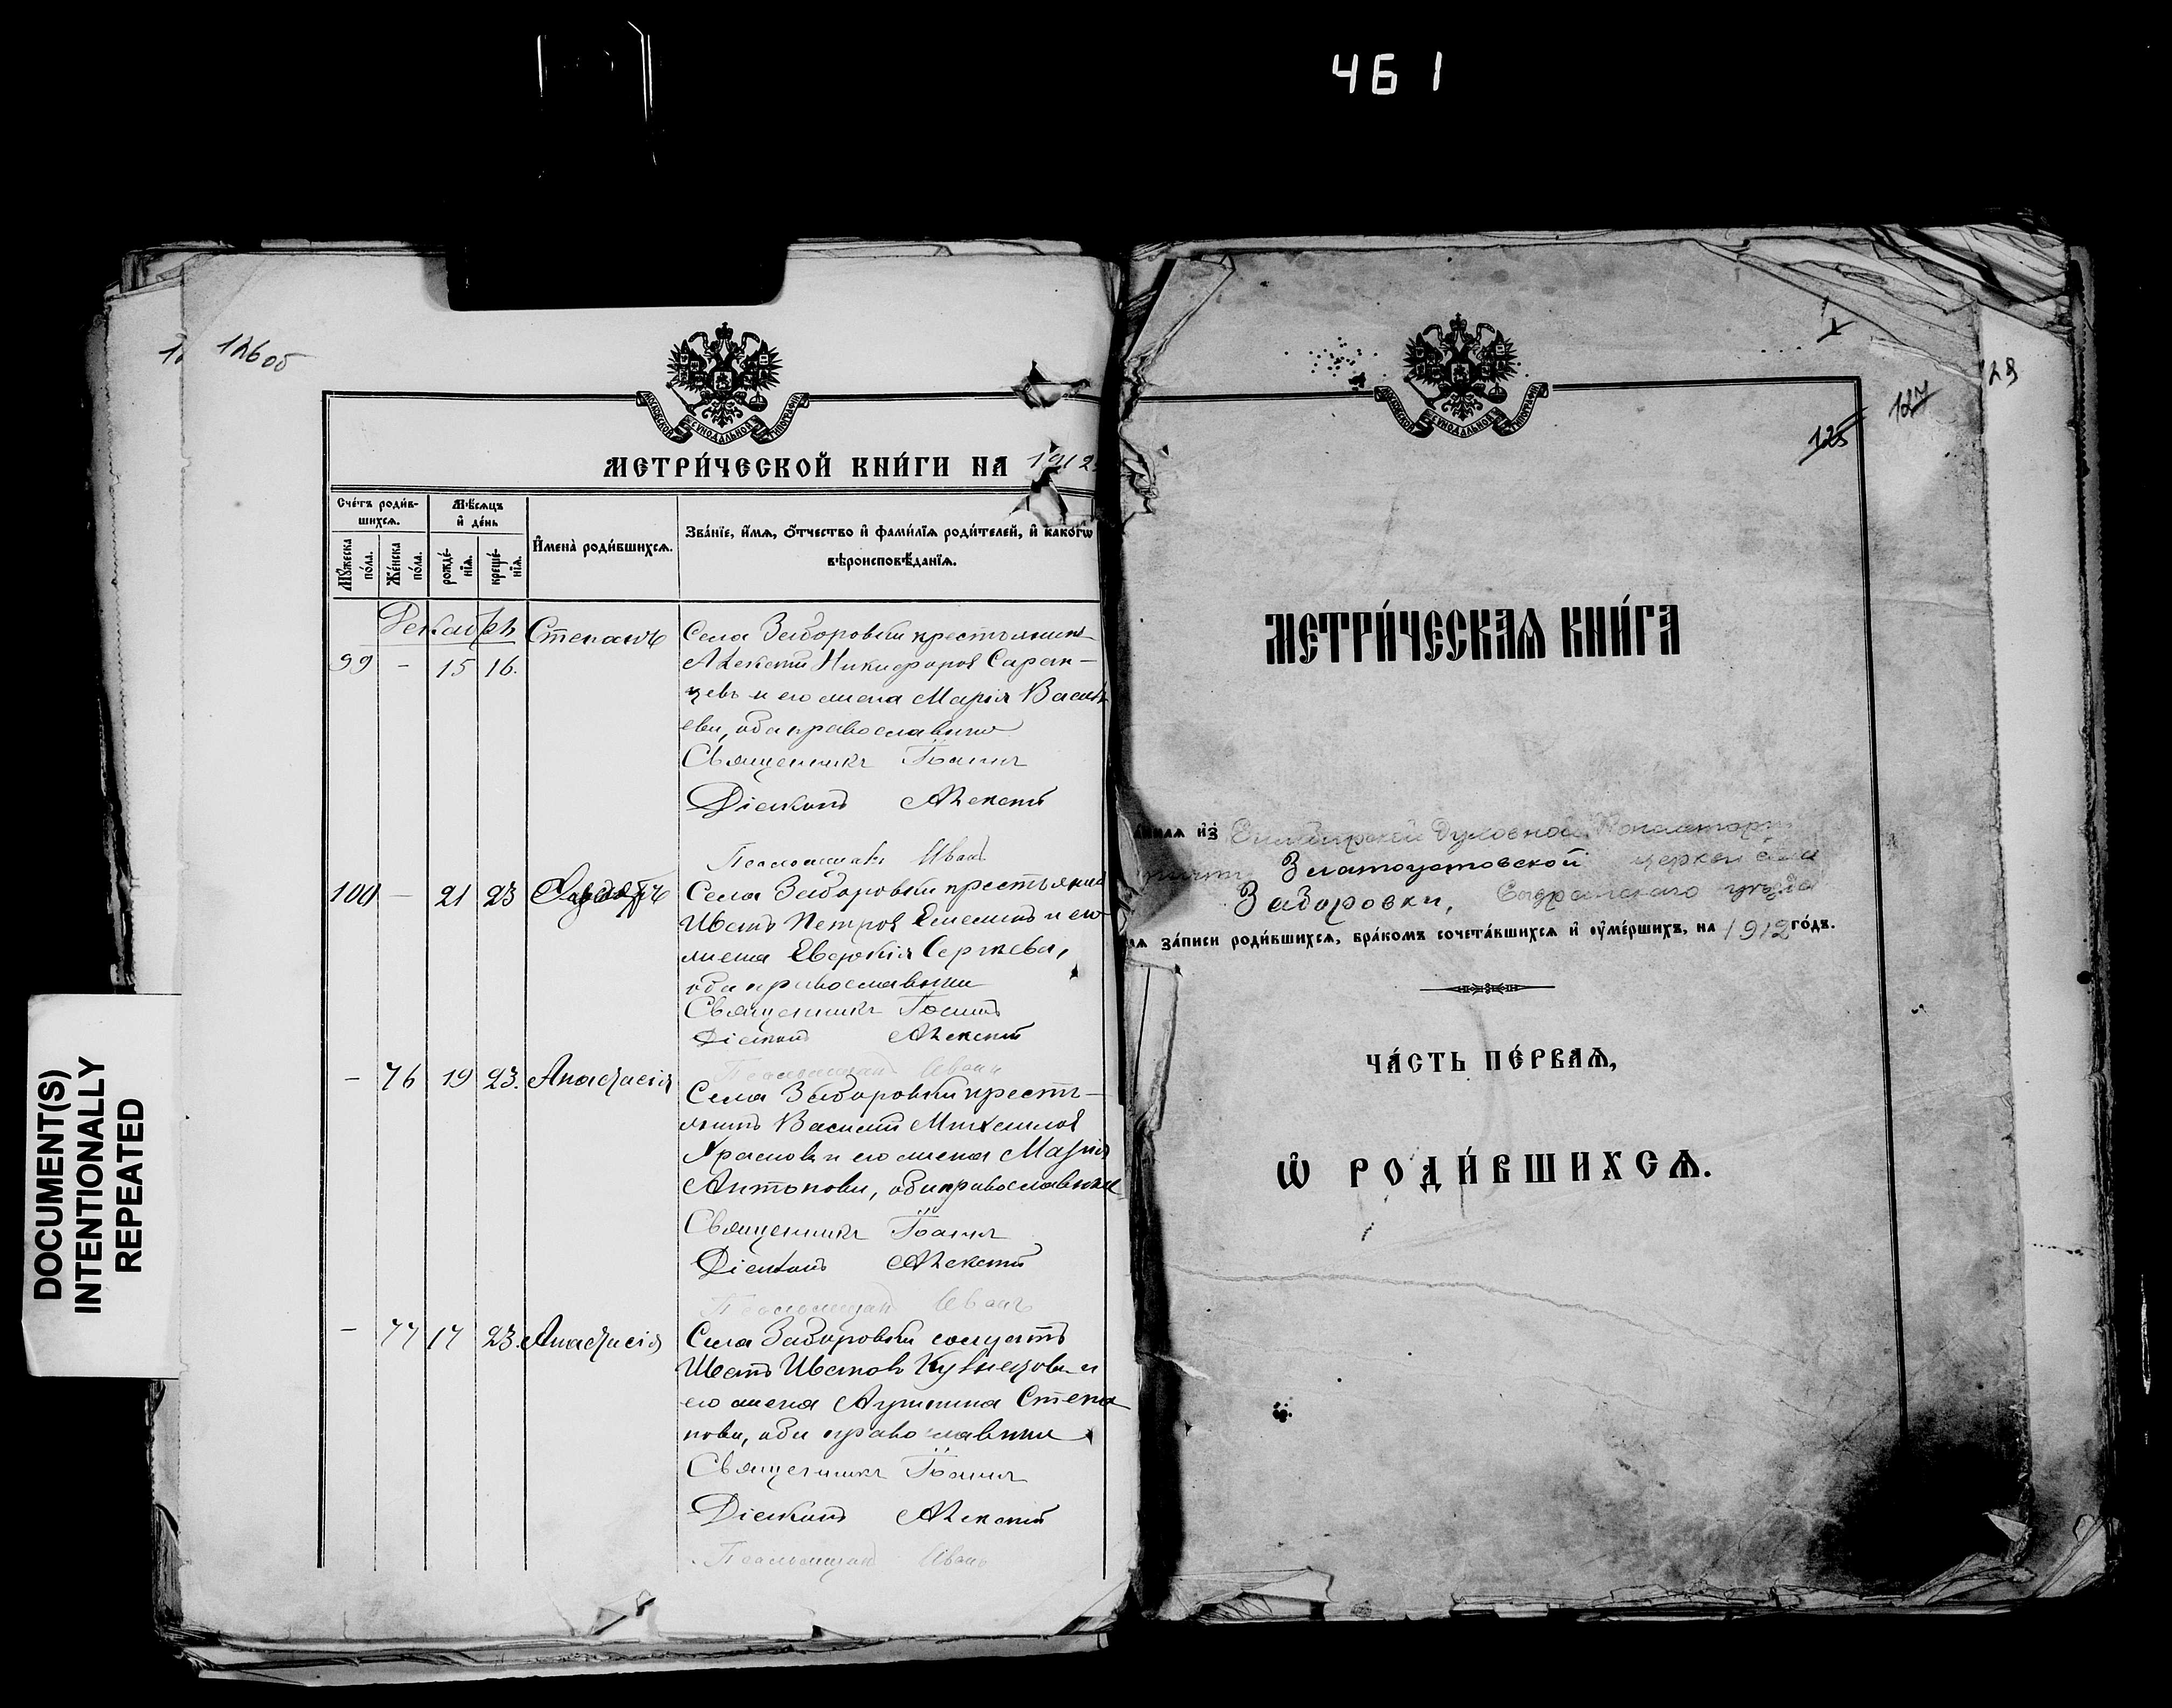 461
126об
МОСКОВСКОЙ СѴНОДАЛЬНОЙ ТИПОГРАФІИ
МЕТРИ́ЧЕСКОЙ КНИ́ГИ НА 1912
Сче́тъ роди́в-
шихсѧ.
Мѣ́сѧцъ
и҆ де́нь
И҆мена̀ роди́вшихсѧ.
Зва́нїе, и҆́мѧ, ѻ҆́тчество и҆ фами́лїѧ роди́телей, и҆ како́гѡ
вѣроисповѣ́данїѧ.
Мꙋ́жеска
по́ла.
Же́нска
по́ла.
рожде́-
нїѧ.
креще́-
нїѧ.
Декабрь
99 - 15 16. Степанъ
Села Заборовки крестьянинъ
Алексѣй Никифоровъ Саран-
цевъ и его жена Марія Василь
ева, оба православные
Священникъ Іоаннъ
Діаконъ Алексѣй
Псаломщикъ Иванъ
100 - 21 23
Села Заборовки крестьянинъ
Иванъ Петровъ и его
жена Евдокія Сергѣева,
оба православные
Священникъ Іоаннъ
Діаконъ Алексѣй
Псаломщикъ Иванъ
- 76 19 23. Анастасія
Села Заборовки кресть-
янинъ Василій Михайловъ
Красновъ и его жена Марія
Антонова, оба православные
Священникъ Іоаннъ
Діаконъ Алексѣй
Псаломщикъ Иванъ
- 77 17 23. Анастасія
Села Заборовки солдатъ
Иванъ Ивановъ Кузнецовъ и
его жена Степа
нова, оба православные
Священникъ Іоаннъ
Діаконъ Алексѣй
Псаломщикъ Иванъ
DOCUMENT(S)
INTENTIONALLY
REPEATED
128
127
125
МОСКОВСКОЙ СѴНОДАЛЬНОЙ ТИПОГРАФІИ
МЕТРИ́ЧЕСКАѦ КНИ́ГА
аннаѧ и҆з̾ Симбирской Духовной Консисторіи
причту Златоустовской церкви села
Заборовки, Сызранскаго уѣзда
за́писи роди́вшихсѧ, бра́комъ сочета́вшихсѧ и҆ ᲂу҆ме́ршихъ, на 1912 го́дъ.
ЧА́СТЬ ПЕ́РВАѦ,
Ѽ РОДИ́ВШИХСѦ.